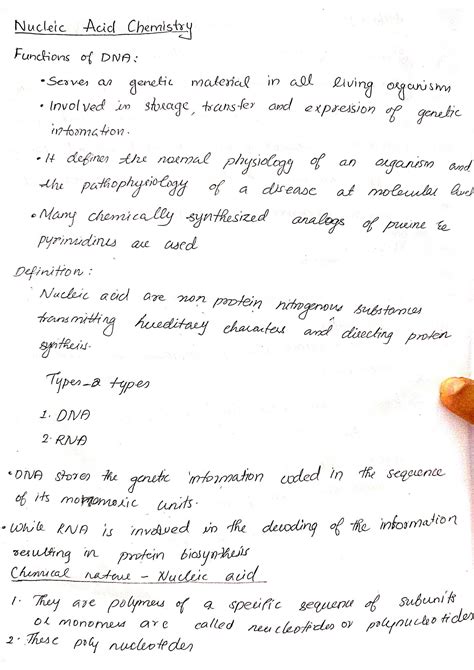 Nucleic Acid Chemistry
Functions of DNA:
• Serves as genetic material in all living organism
• Involved in storage, transfer and expression of genetic
information.
• It defines the normal physiology of an organism and
the pathophysiology of a disease at molecular level
• Many chemically synthesized analogs of purine &
pyrimidines are used
Definition:
Nucleic acid are non protein nitrogenous substances
transmitting hereditary characters and directing protein
synthesis.
Types - 2 types
1. DNA
2. RNA
• DNA stores the genetic information coded in the sequence
of its monomeric units.
• While RNA is involved in the decoding of the information
resulting in protein biosynthesis
Chemical nature - Nucleic acid
1. They are polymers of a specific sequence of subunits
or monomers are called neucleotides or polynucleotides
2. These poly nucleotedes